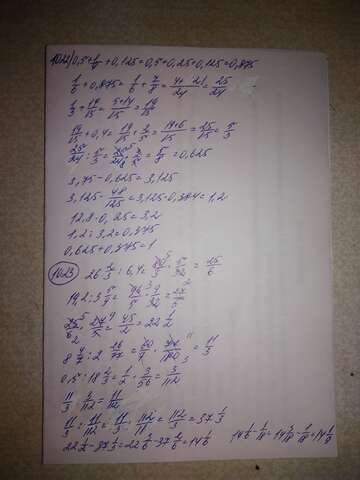 1022) 0,5+1/4+0,125=0,5+0,25+0,125=0,875
1/6+0,875=1/6+7/8=(4+21)/24=25/24
1/3+14/15=(5+14)/15=19/15
19/15+0,4=19/15+2/5=(19+6)/15=25/15=5/3
25/24:5/3=25/24·3/5=5/8=0,625
3,75-0,625=3,125
3,125·48/125=3,125·0,384=1,2
12,8·0,25=3,2
1,2:3,2=0,375
0,625+0,375=1
1023 26 2/3:6,4=80/3·5/32=25/6
14,2:3 5/9=72/5·9/32=
25/6·27/=45/2=22 1/2
8 4/7:2 26/77=60/7·77/180=11/3
0,5:18 2/3=1/2·3/56=3/112
11/3·3/112=11/112
11/3:11/112=11/3·112/11=112/3=37 1/3